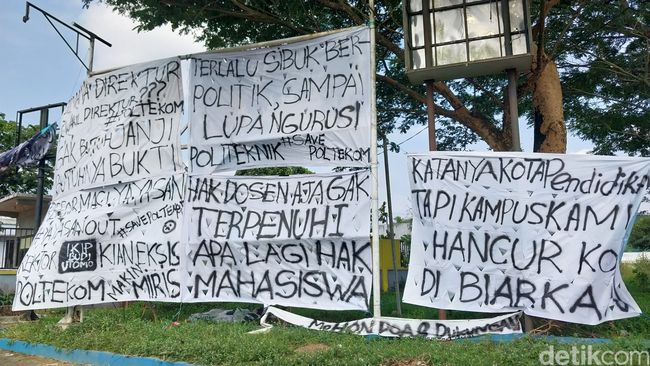 DIREKTUR
DIREKTUR???
POLTEKOM
JANJI
BUKTI
TERLALU SIBUK BER-
POLITIK, SAMPAI
LUPA NGURUSI
POLITEKNIK #SAVE
POLTEKOM
YAYASAN
OUT
IKIP
BUDI
UTOMO
KIAN EKSIS
POLTEKOM
MAKIN
MIRIS
HAK DOSEN AJA GAK
TERPENUHI
APA LAGI HAK
MAHASISWA
KATANYA KOTA Pendidika
TAPI KAMPUS KAMI
HANCUR KO
DI BIARKA
MOHON DOA & DUKUNGAN
detikcom